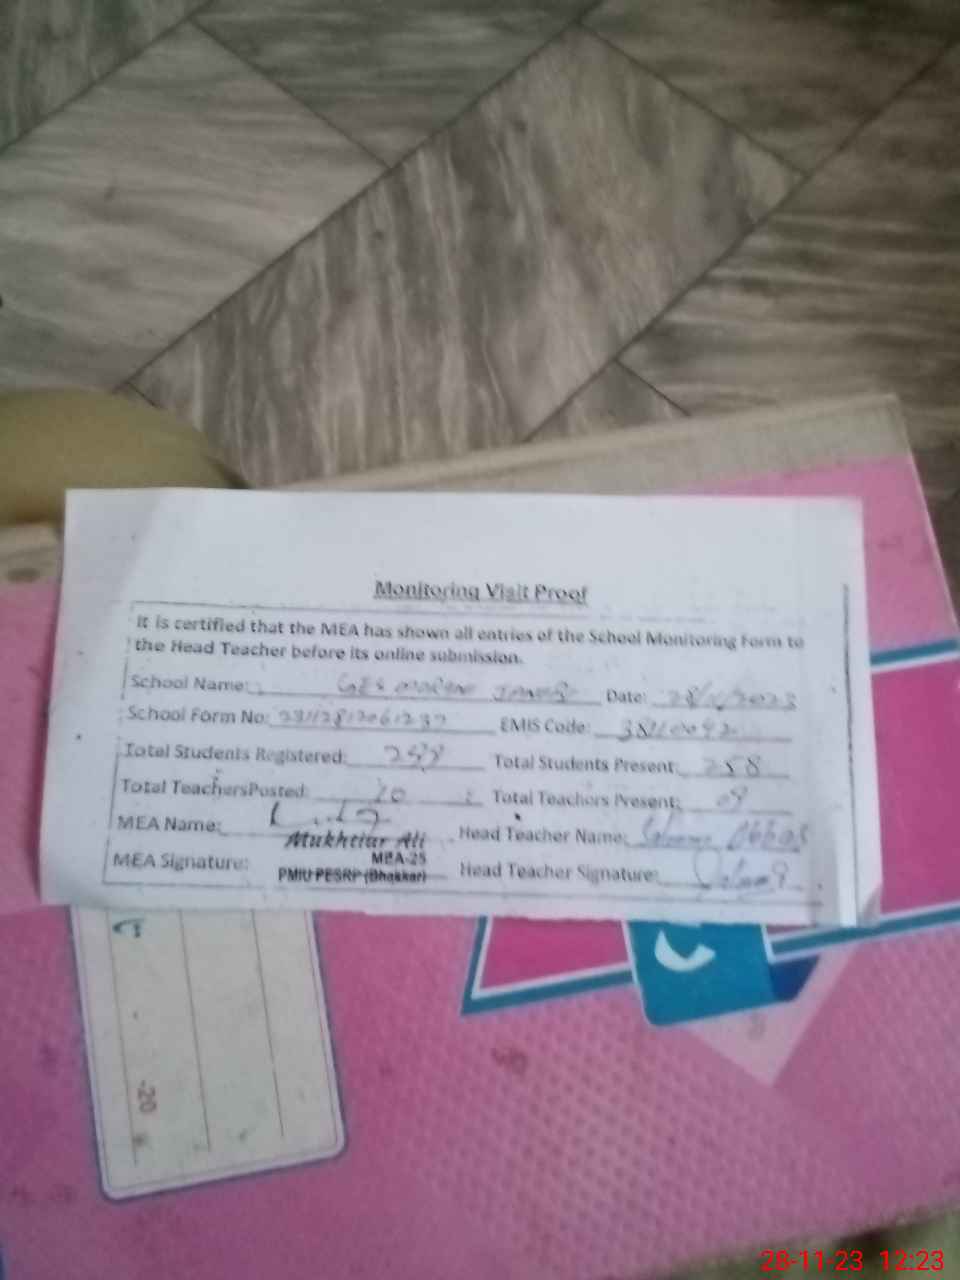 Monitoring Visit Proof
It is certified that the MEA has shown all entries of the School Monitoring Form to
the Head Teacher before its online submission.
School Name: Date: 28/11/2023
School Form No: EMIS Code:
Total Students Registered: Total Students Present: 258
Total TeachersPosted: 10 Total Teachers Present: 09
MEA Name: Mukhtiar Ali Head Teacher Name: Abbas
MEA-25
MEA Signature: PMIU PESRP (Bhakkar) Head Teacher Signature:
-20
28-11-23 12:23